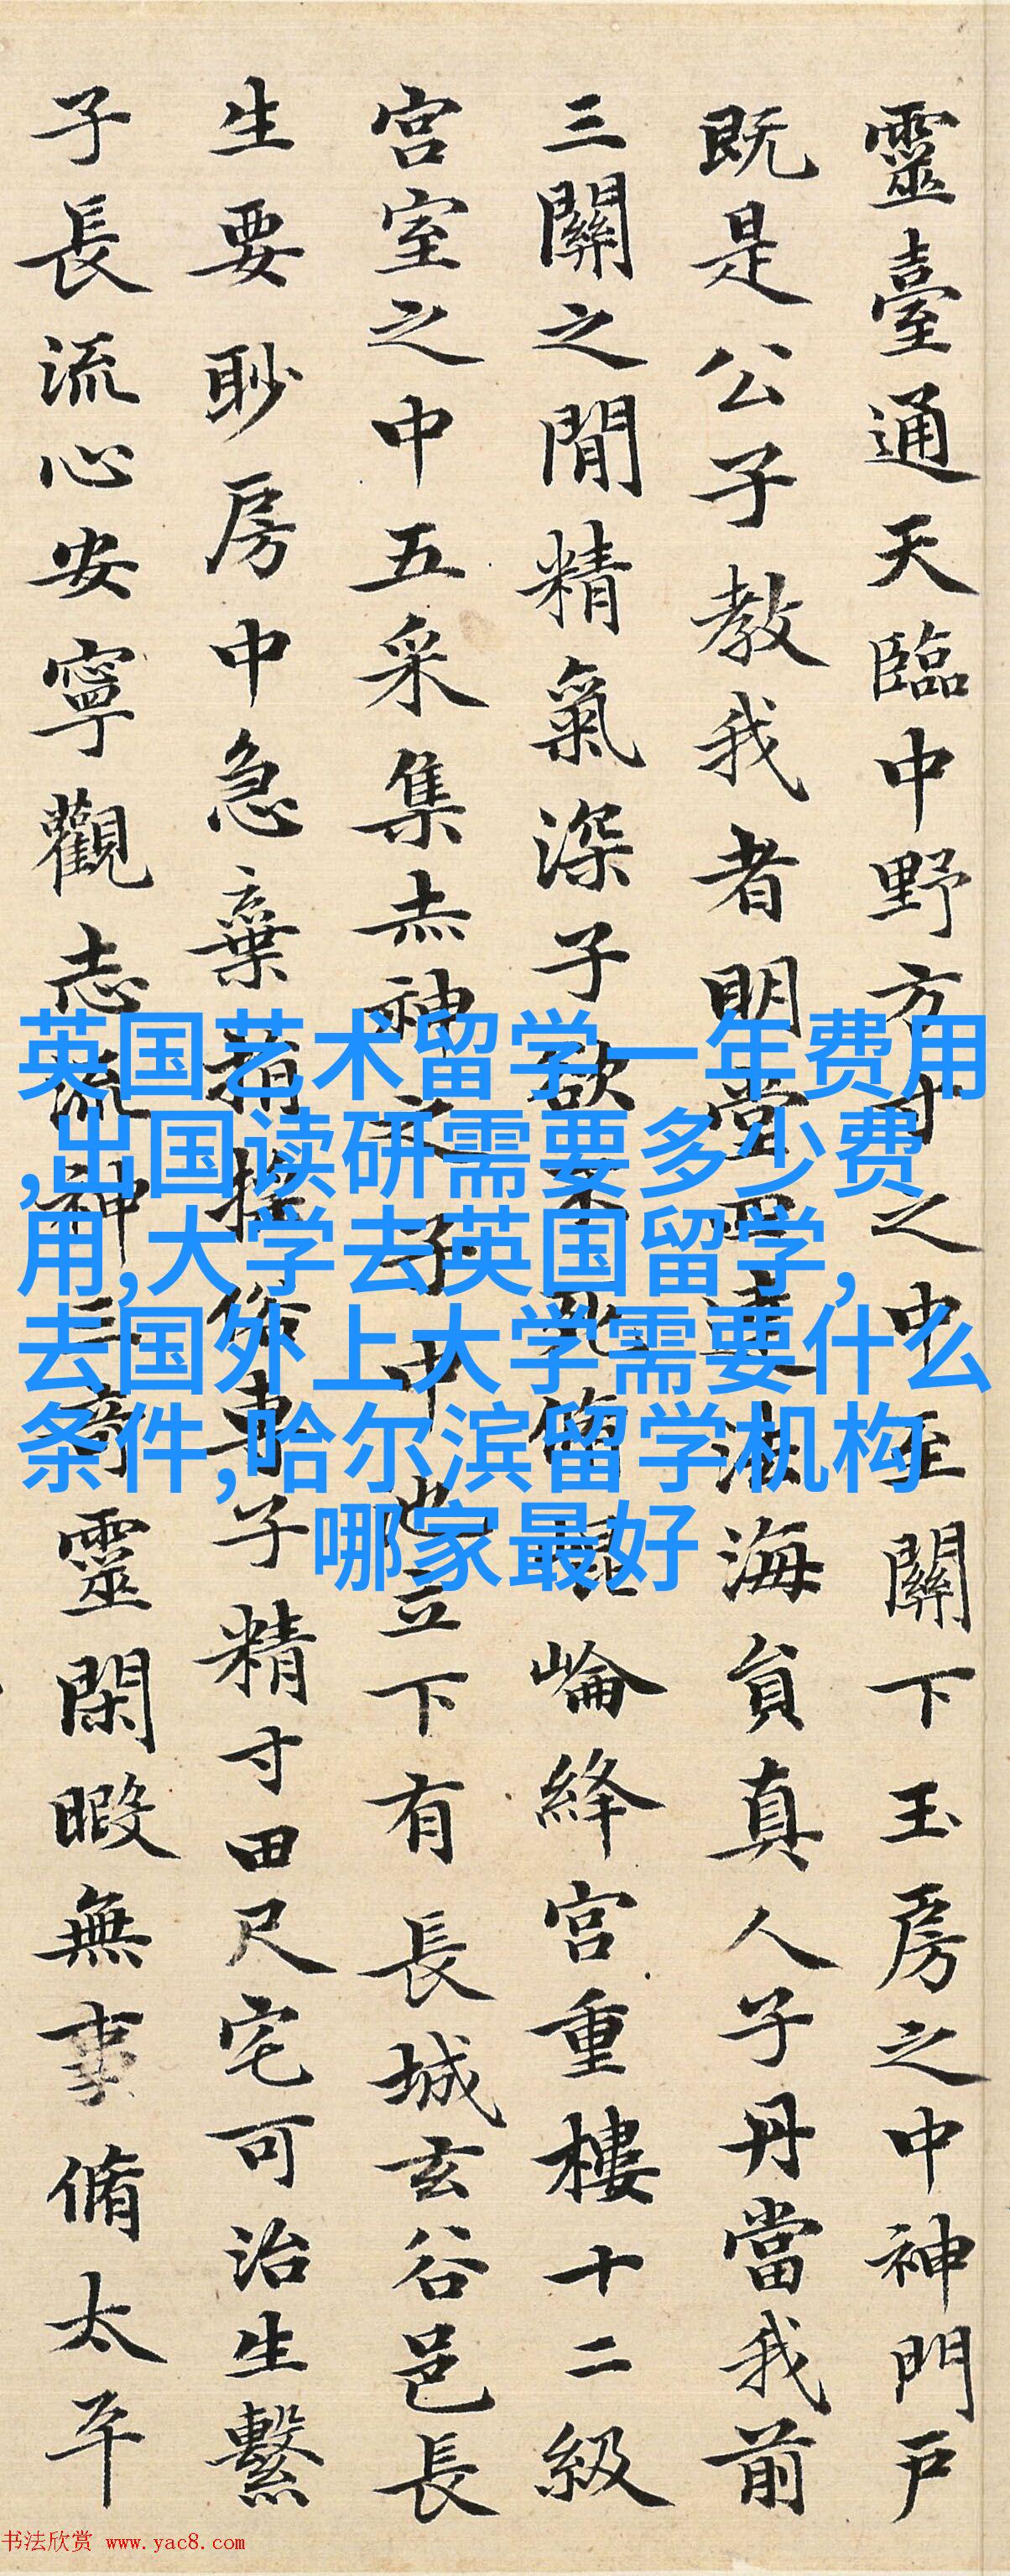 靈臺通天臨中野方寸之中至關下玉房之中神門戶
既是公子教我者明堂四達法海員真人子丹當我前
三關之間精氣深子欲不死脩崑崙絳宮重樓十二級
宮室之中五采集赤神之子中池立下有長城玄谷邑長
生要眇房中急棄捐搖俗專子精寸田尺宅可治生繫
子長流心安寧觀志流神三奇靈閑暇無事脩太平
英国艺术留学一年费用
,出国读研需要多少费
用,大学去英国留学,
去国外上大学需要什么
条件,哈尔滨留学机构
哪家最好
书法欣赏 www.yac8.com